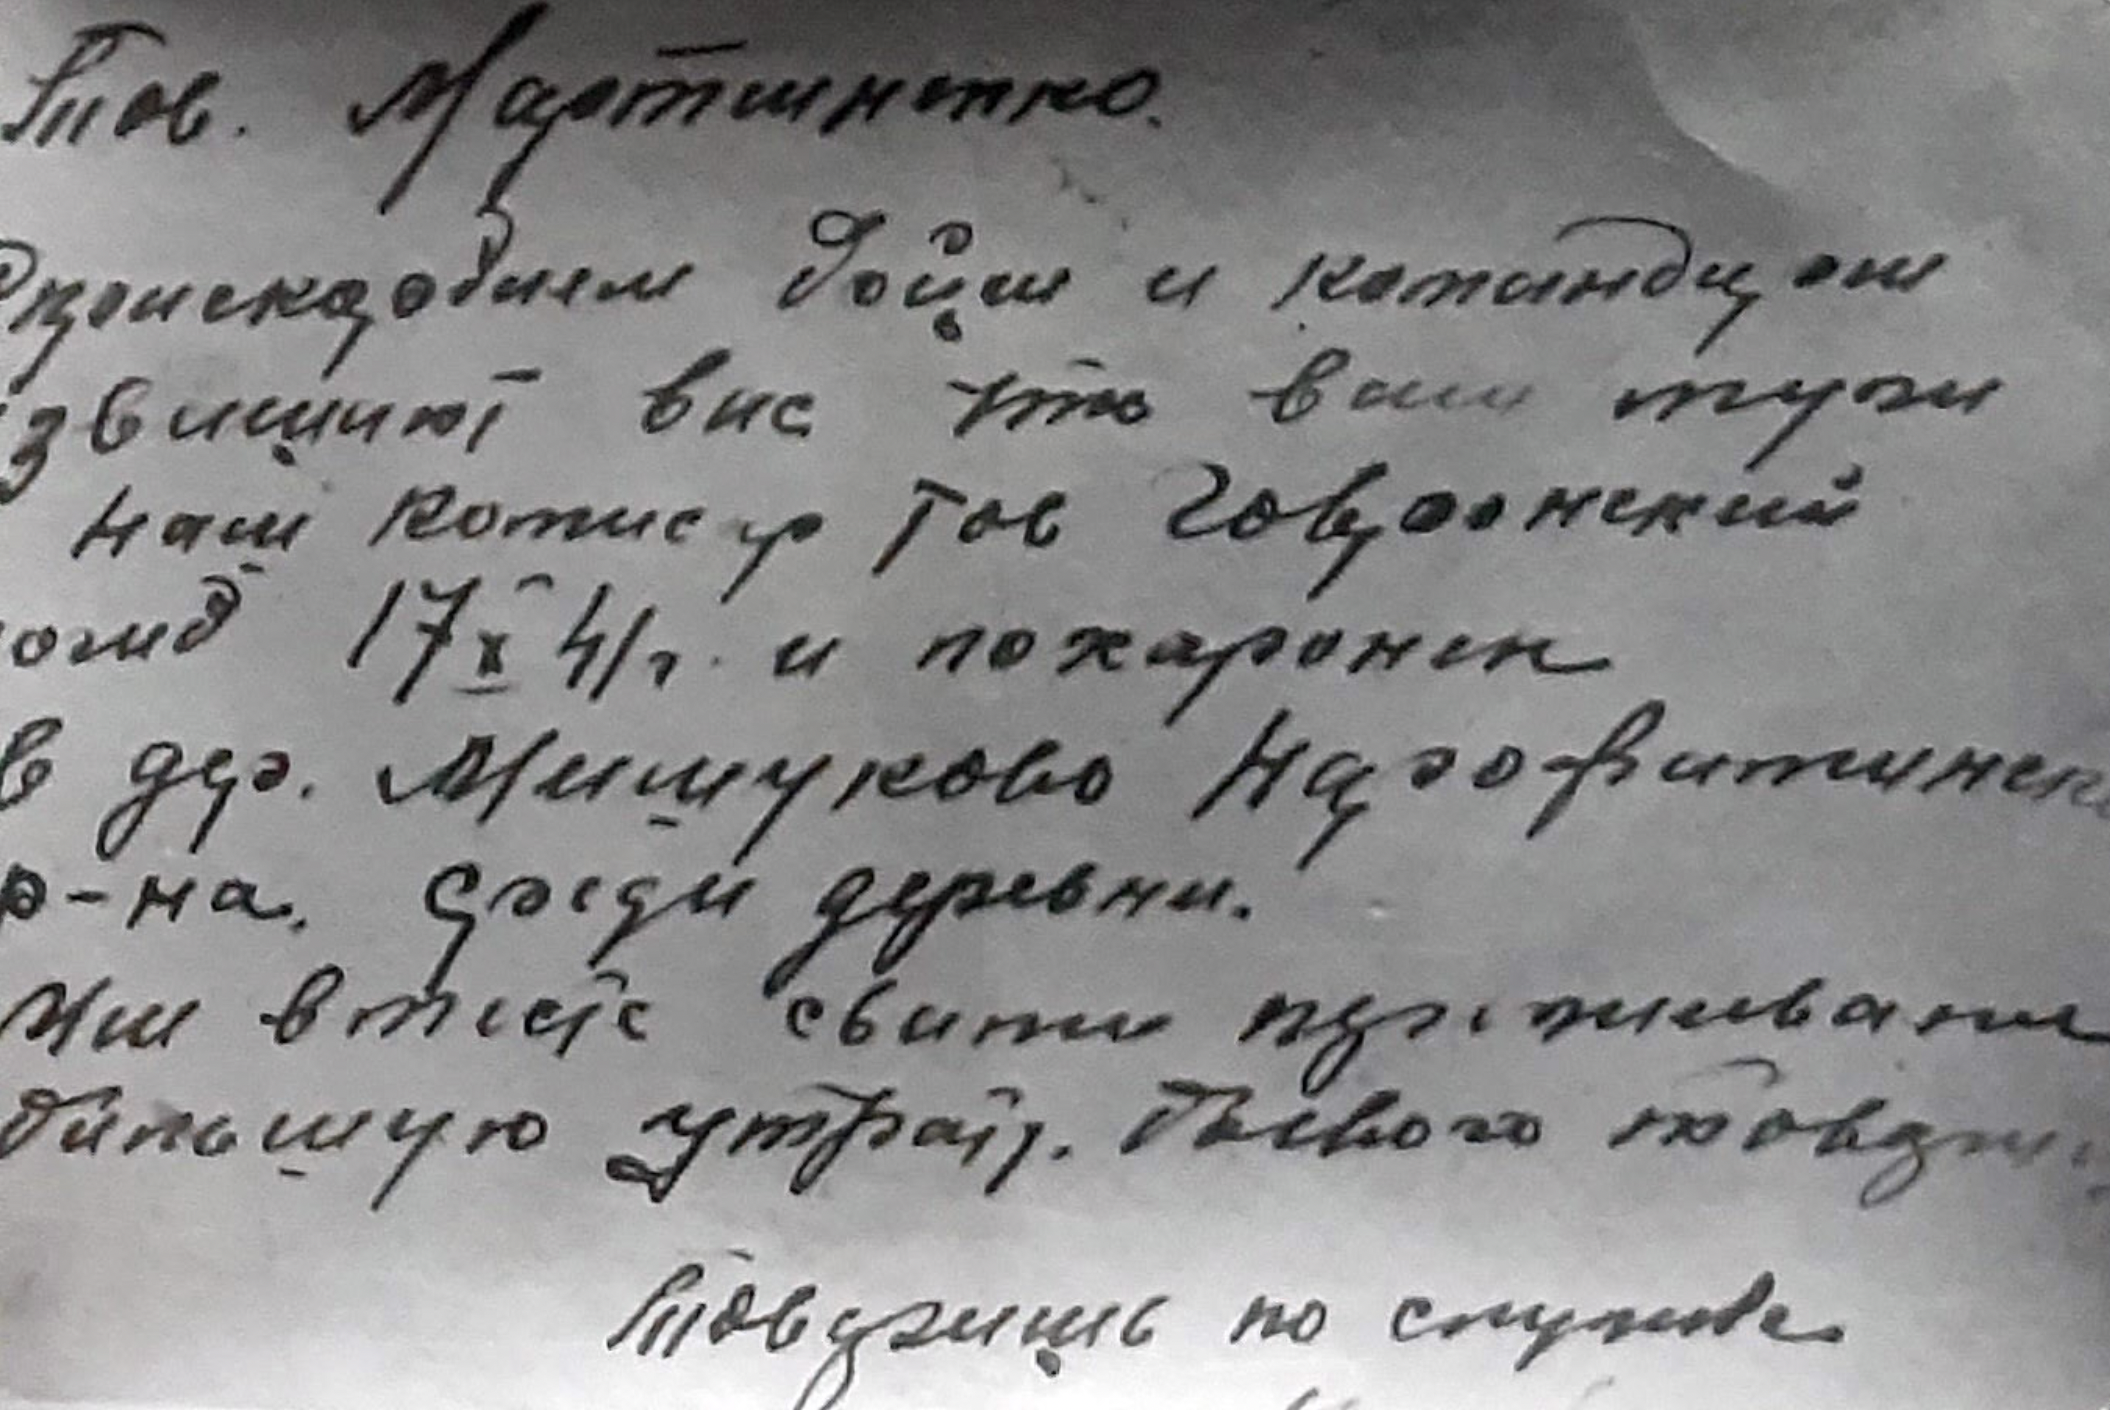 Тов. Мартиненко.
бойцы и командиры
извещают вас что ваш муж
наш комисар тов Говронский
погиб 17 X 41г. и похаронен
в дер. Мишуково Нарофоминск
р-на. среди деревни.
Мы вместе с вами переживаем
большую утрату. боевого товарищ
Товарищь по службе